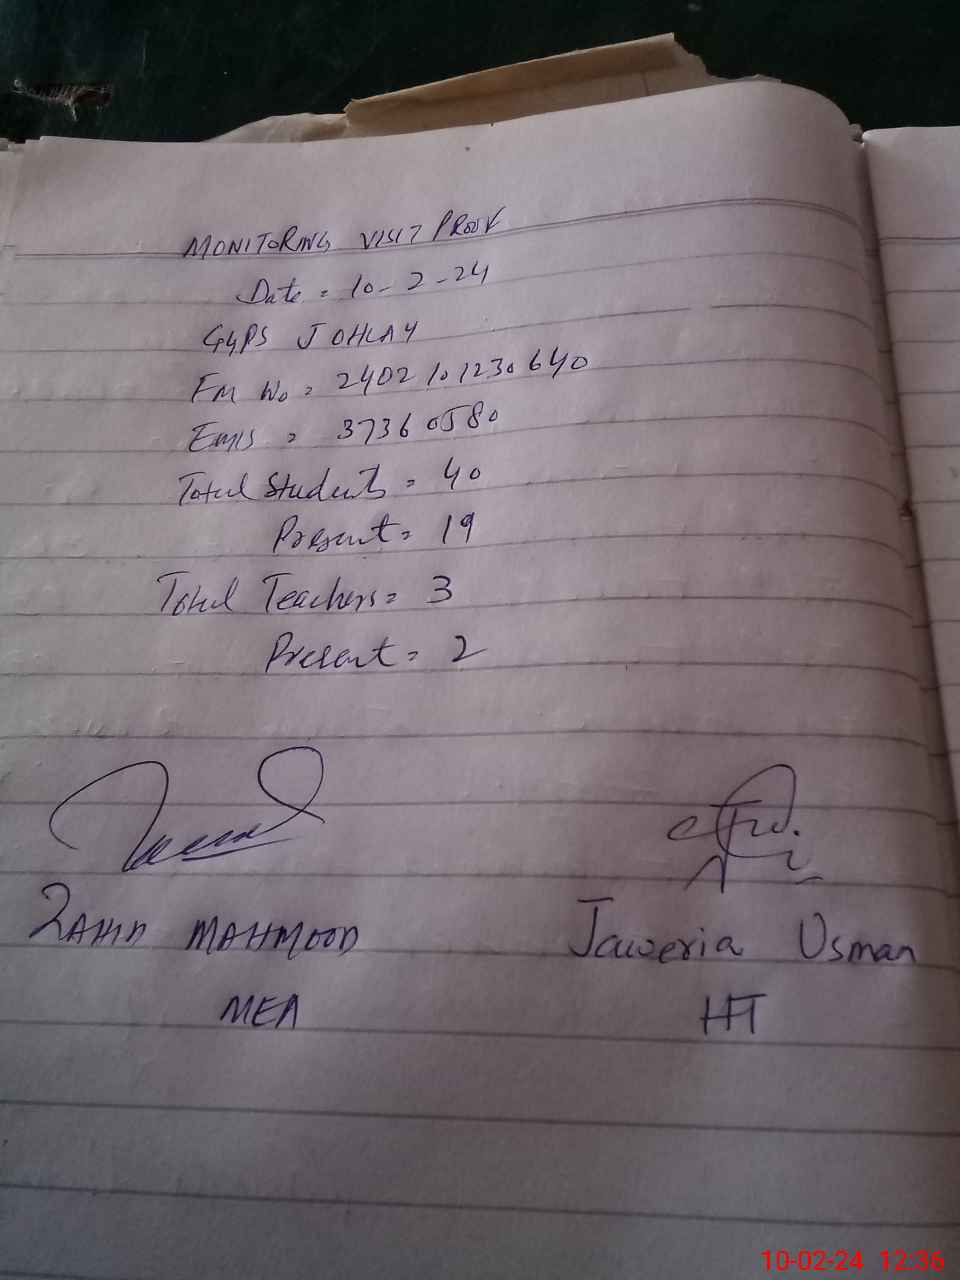 MONITORING VISIT PROOF
Date = 10-2-24
GGPS JOHLAY
FM No = 2402101230640
Emis = 37360580
Total Students = 40
Present = 19
Total Teachers = 3
Present = 2
ZAHID MAHMOOD
Jaweria Usman
MEA
HT
10-02-24 12:36